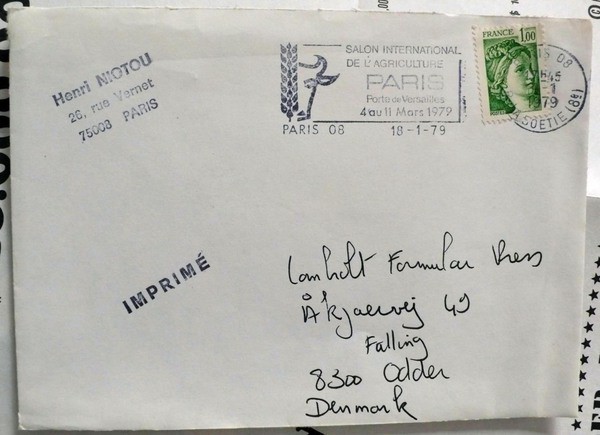 Henri NIOTOU
26, rue Vernet
75008 PARIS
SALON INTERNATIONAL
DE L'AGRICULTURE
PARIS
Porte de Versailles
4 au 11 Mars 1979
PARIS 08 18-1-79
FRANCE 1,00
08
BOETIE (8e)
IMPRIMÉ
Lomholt Formular Press
Åkjaervej 49
Falling
8300 Odder
Denmark